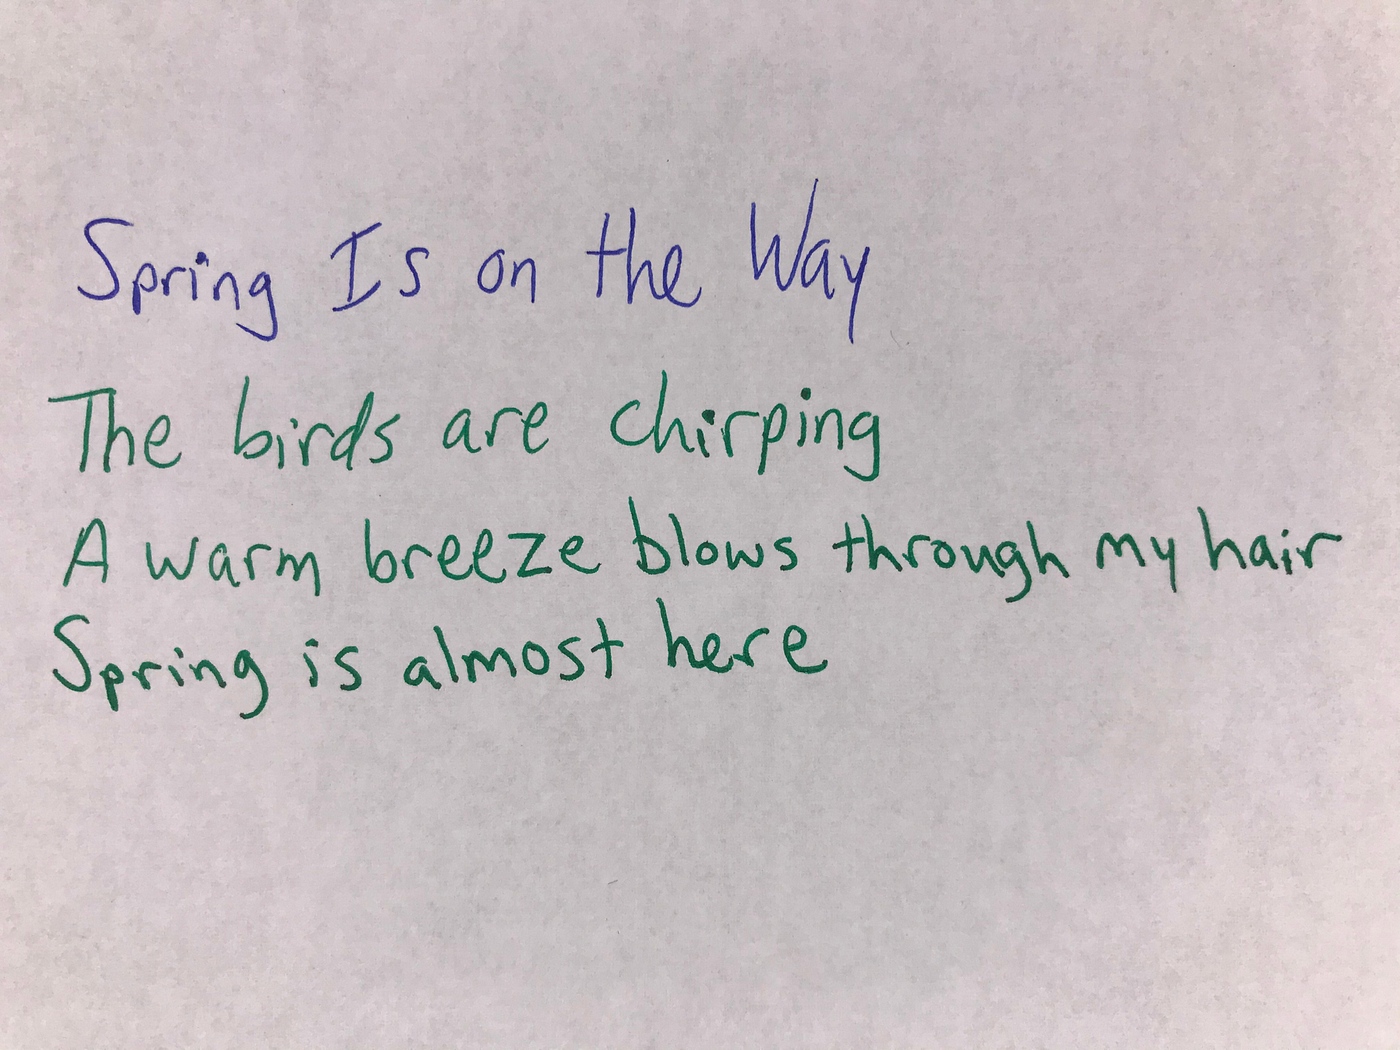 Spring Is on the Way
The birds are chirping
A warm breeze blows through my hair
Spring is almost here